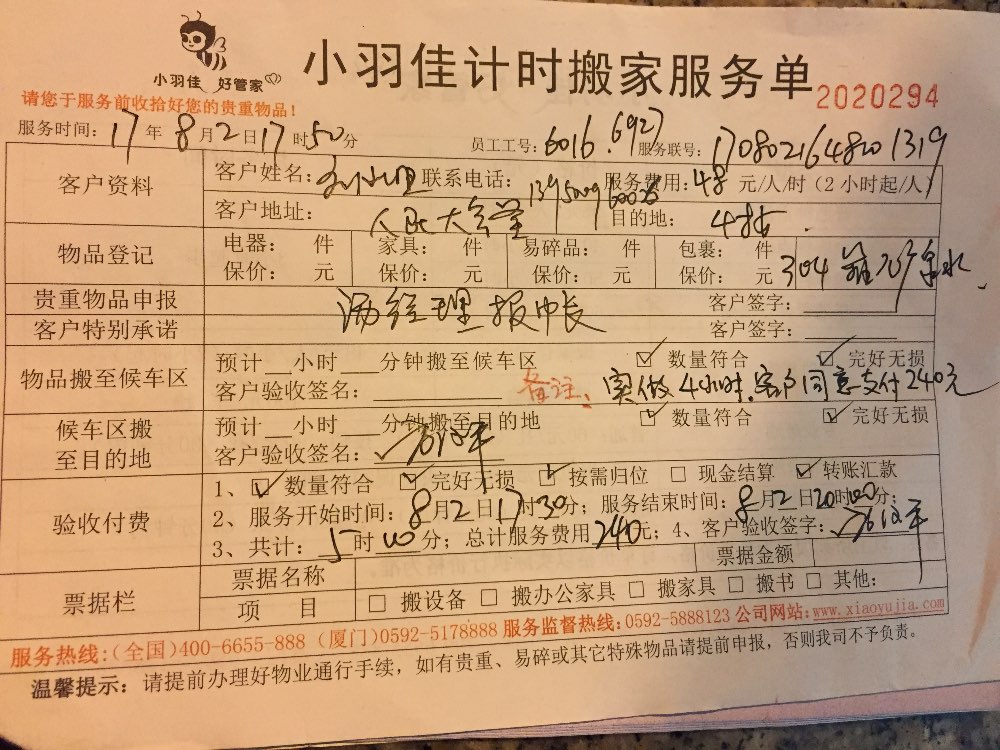 小羽佳 好管家
小羽佳计时搬家服务单 2020294
请您于服务前收拾好您的贵重物品!
服务时间: 17 年 8 月 2 日 17 时 50 分 员工工号: 6016.6927 服务联号: 170802164820 1319
客户资料 客户姓名: 联系电话: 服务费用: 48 元/人/时(2小时起/人)
客户地址: 人民大会堂 目的地: 4
物品登记 电器: 件 家具: 件 易碎品: 件 包裹: 件
保价: 元 保价: 元 保价: 元 保价: 元 304 矿泉水
贵重物品申报 汤经理报 客户签字:
客户特别承诺 客户签字:
物品搬至候车区 预计 小时 分钟搬至候车区 ☑ 数量符合 ☑ 完好无损
客户验收签名: 备注: 实做4小时,客户同意支付240元
候车区搬至目的地 预计 小时 分钟搬至目的地 ☑ 数量符合 ☑ 完好无损
客户验收签名:
验收付费 1、☑ 数量符合 ☑ 完好无损 ☑ 按需归位 □ 现金结算 ☑ 转账汇款
2、服务开始时间: 8 月 2 日 17 时 30 分; 服务结束时间: 8 月 2 日 20 时 00 分;
3、共计: 5 时 00 分; 总计服务费用 240 元; 4、客户验收签字:
票据栏 票据名称 票据金额
项 目 □ 搬设备 □ 搬办公家具 □ 搬家具 □ 搬书 □ 其他:
服务热线:(全国)400-6655-888 (厦门)0592-5178888 服务监督热线:0592-5888123 公司网站:www.xiaoyujia.com
温馨提示: 请提前办理好物业通行手续, 如有贵重、易碎或其它特殊物品请提前申报, 否则我司不予负责。